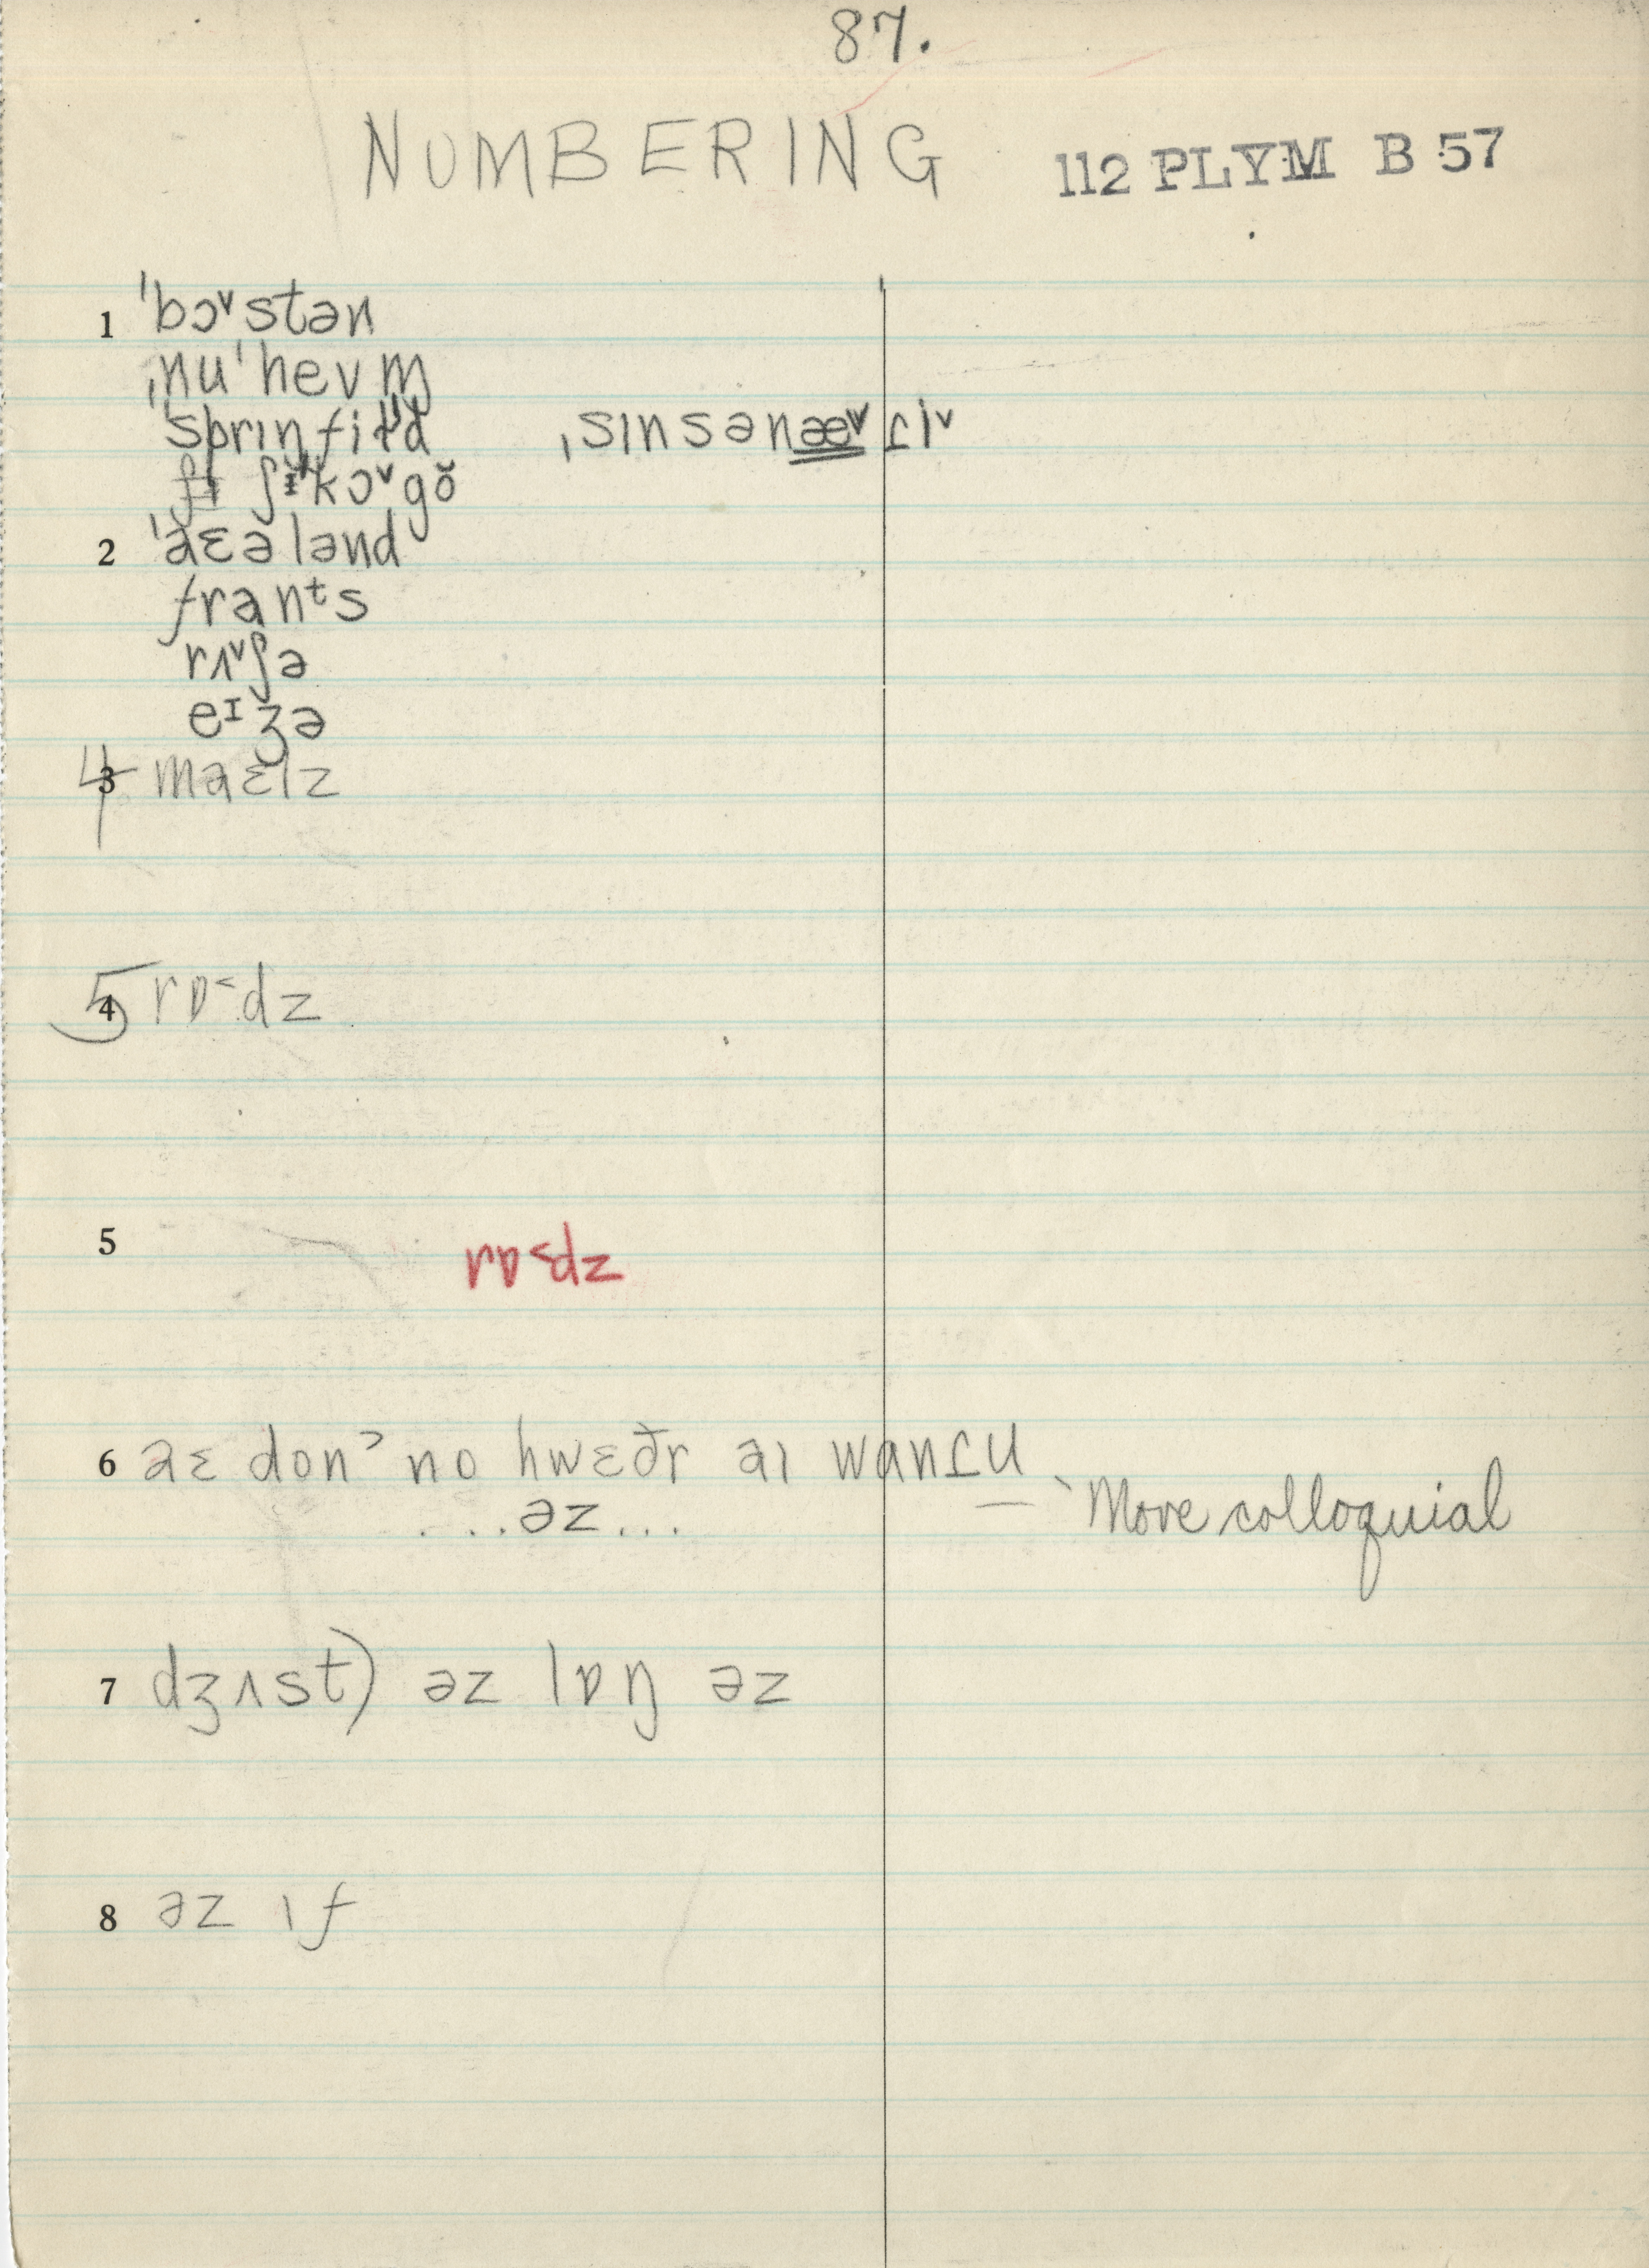 87.
NUMBERING 112 PLYM B 57
1 ˈbɔ˅stən
ˌnuˈhevm̩
ˈsprɪŋfiɫd ˌsɪnsənæ˅ɾi˅
ʃɪˈkɔ˅gŏ
2 ˈaɛələnd
franᵗs
rʌ˅ʃə
eᴵʒə
4 3 maɛlz
5 4 rɒ˂dz
5 rɒ˂dz
6 aɛ donˀ no hwɛðr aɪ wanɾu
...əz... `More colloquial
7 dʒʌst) əz lɒŋ əz
8 əz ɪf